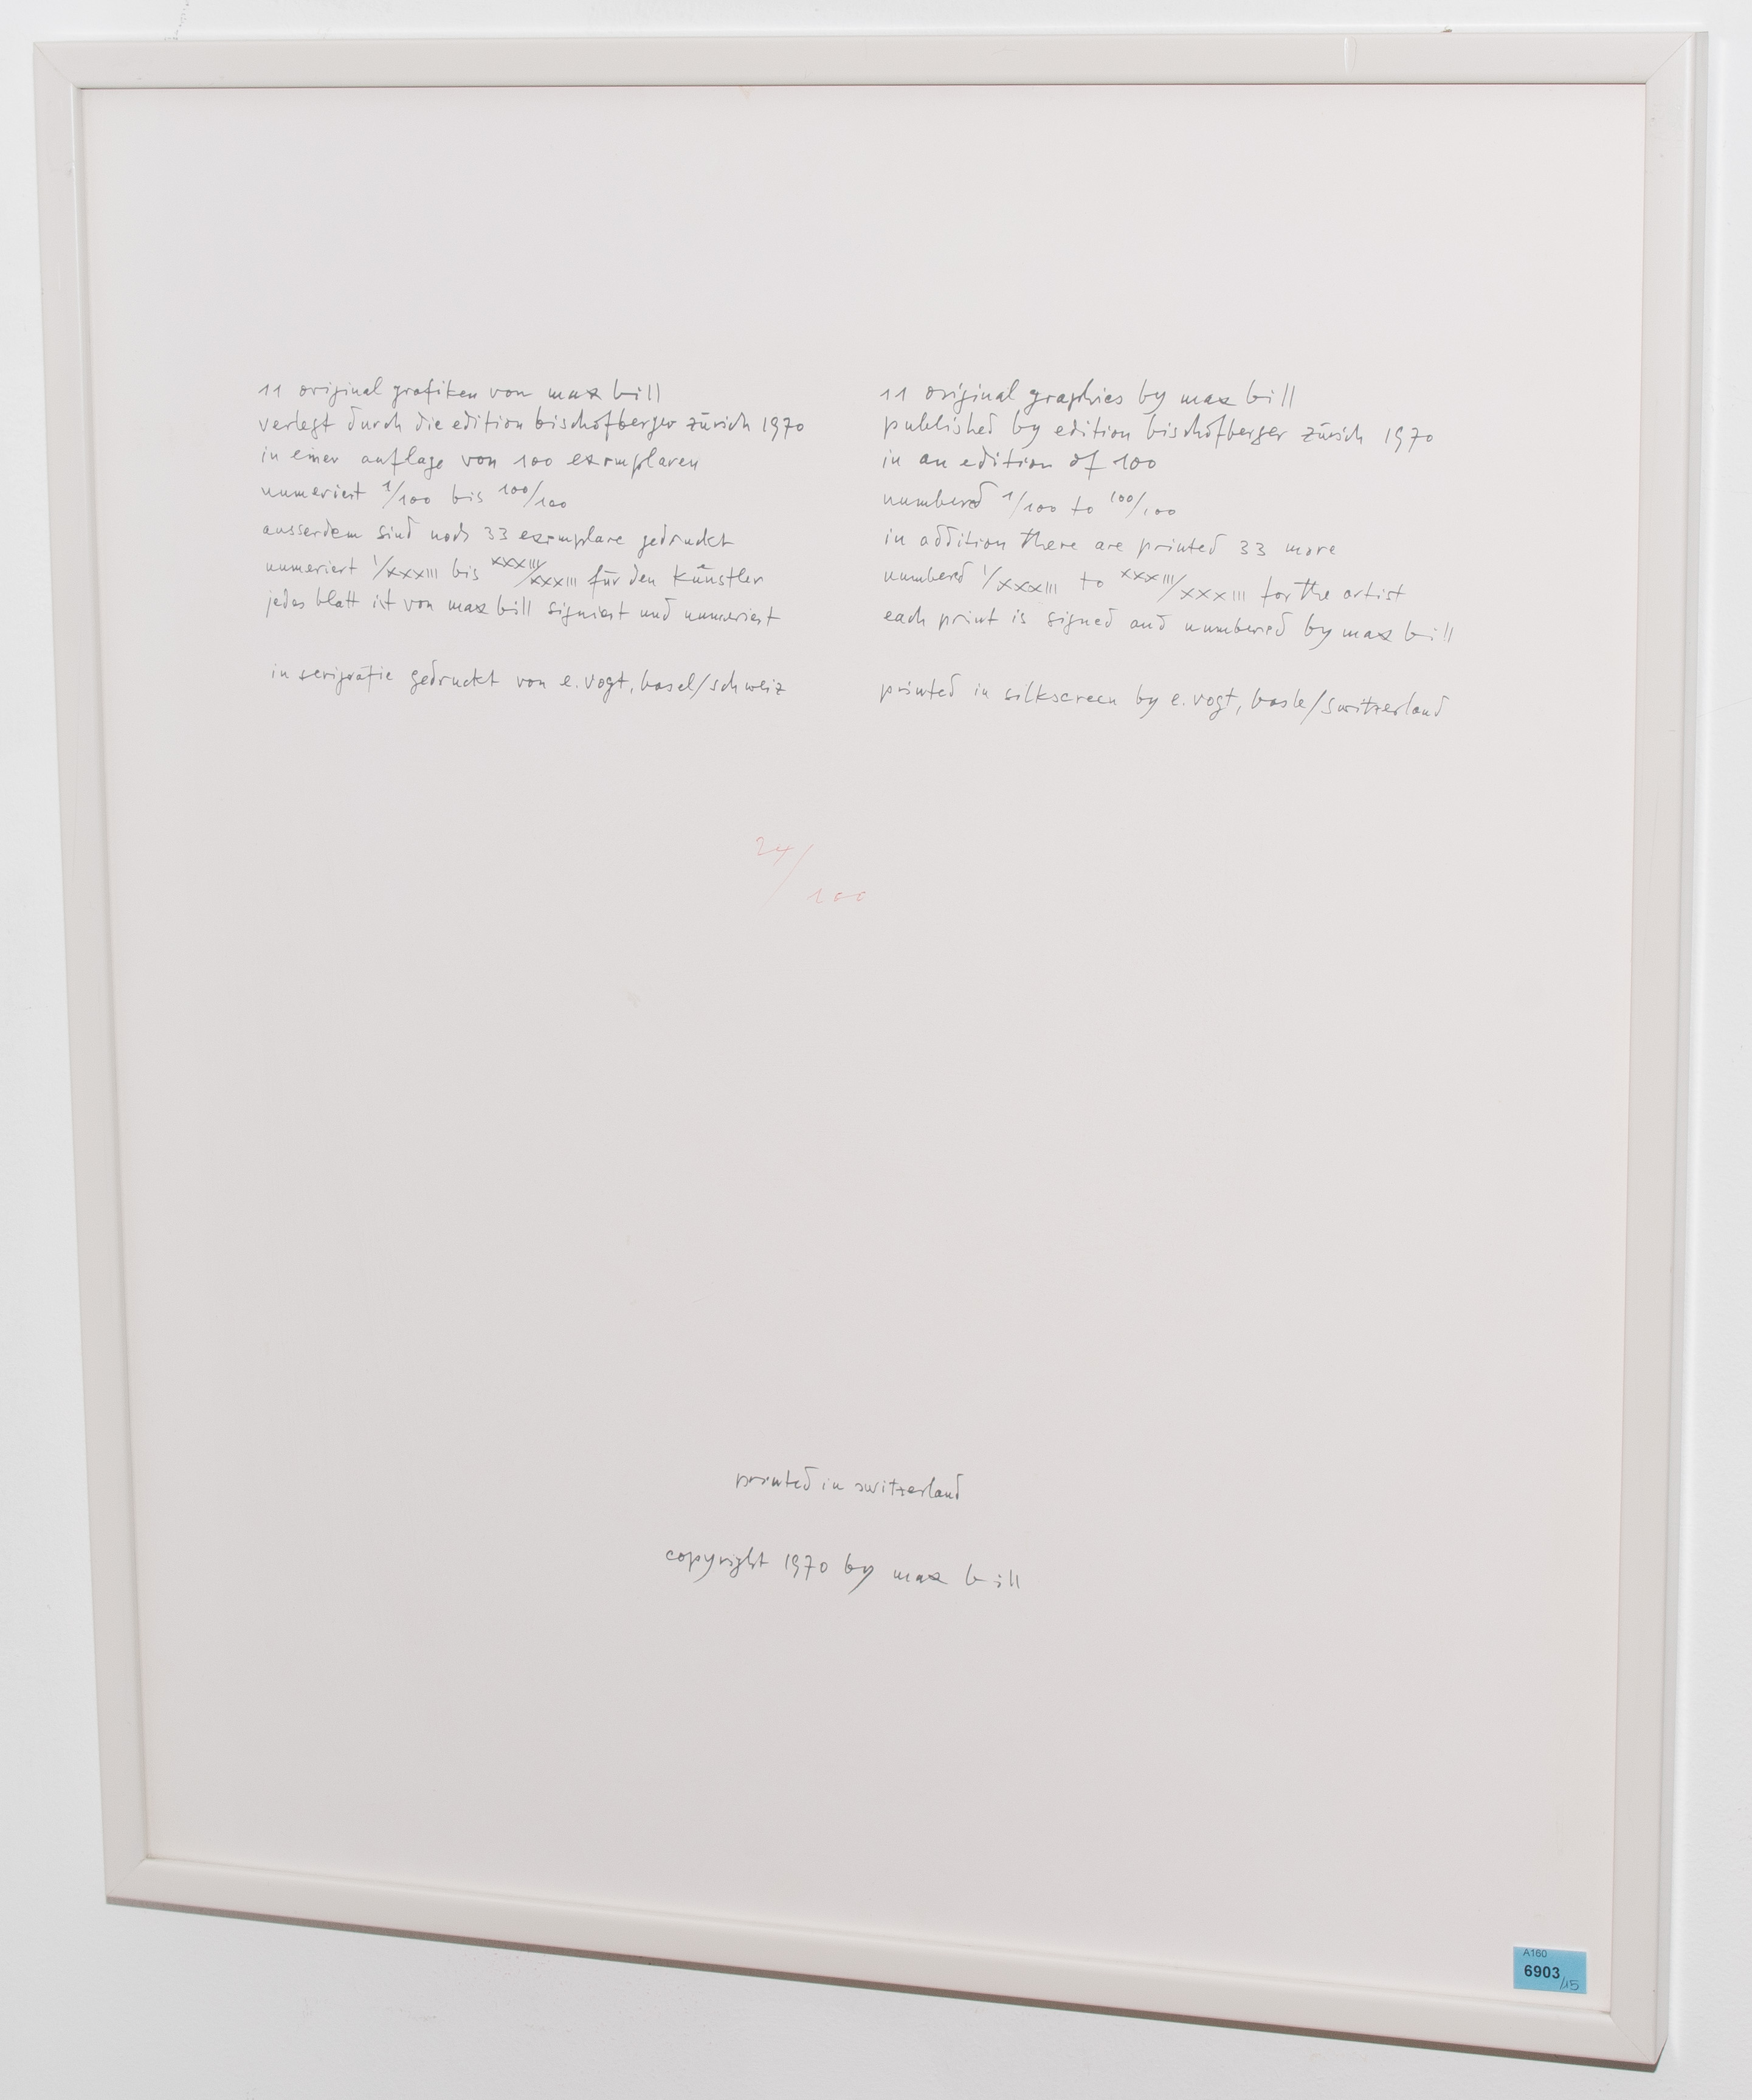 11 original grafiken von max bill
verlegt durch die edition bischofberger zürich 1970
in einer auflage von 100 exemplaren
numeriert 1/100 bis 100/100
ausserdem sind noch 33 exemplare gedruckt
numeriert 1/XXXIII bis XXXIII/XXXIII für den künstler
jedes blatt ist von max bill signiert und numeriert
in serigrafie gedruckt von e. vogt, basel/schweiz
11 original graphics by max bill
published by edition bischofberger zürich 1970
in an edition of 100
numbered 1/100 to 100/100
in addition there are printed 33 more
numbered 1/XXXIII to XXXIII/XXXIII for the artist
each print is signed and numbered by max bill
printed in silkscreen by e. vogt, basle/switzerland
24/100
printed in switzerland
copyright 1970 by max bill
A160
6903/15